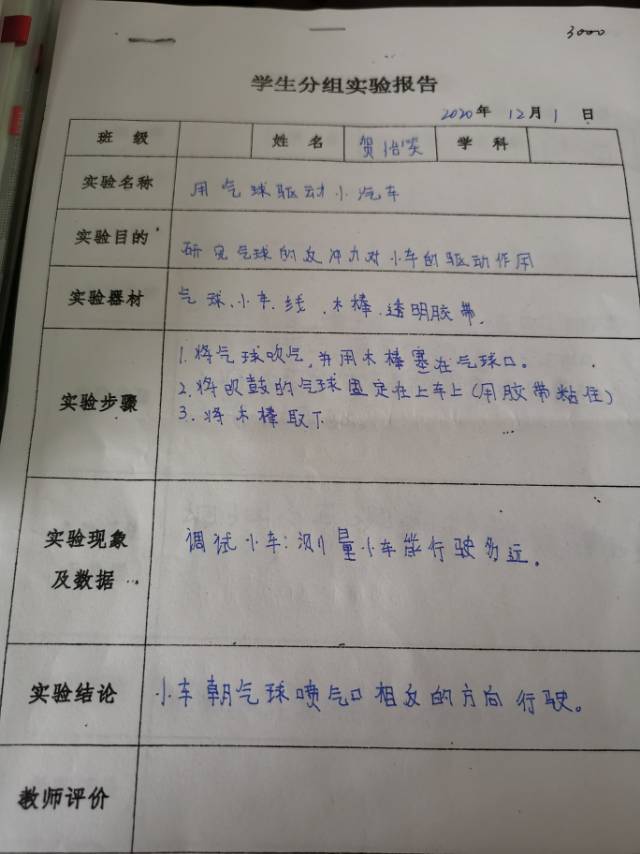 3000
学生分组实验报告
2020年 12月 1 日
班 级 姓 名 贺怡笑 学 科
实验名称 用气球驱动小汽车
实验目的 研究气球的反冲力对小车的驱动作用
实验器材 气球、小车、线、木棒、透明胶带。
1. 将气球吹气，并用木棒塞在气球口。
实验步骤 2. 将吹鼓的气球固定在上车上（用胶带粘住）
3. 将木棒取下
实验现象 调试小车：测量小车能行驶多远。
及数据
实验结论 小车朝气球喷气口相反的方向行驶。
教师评价